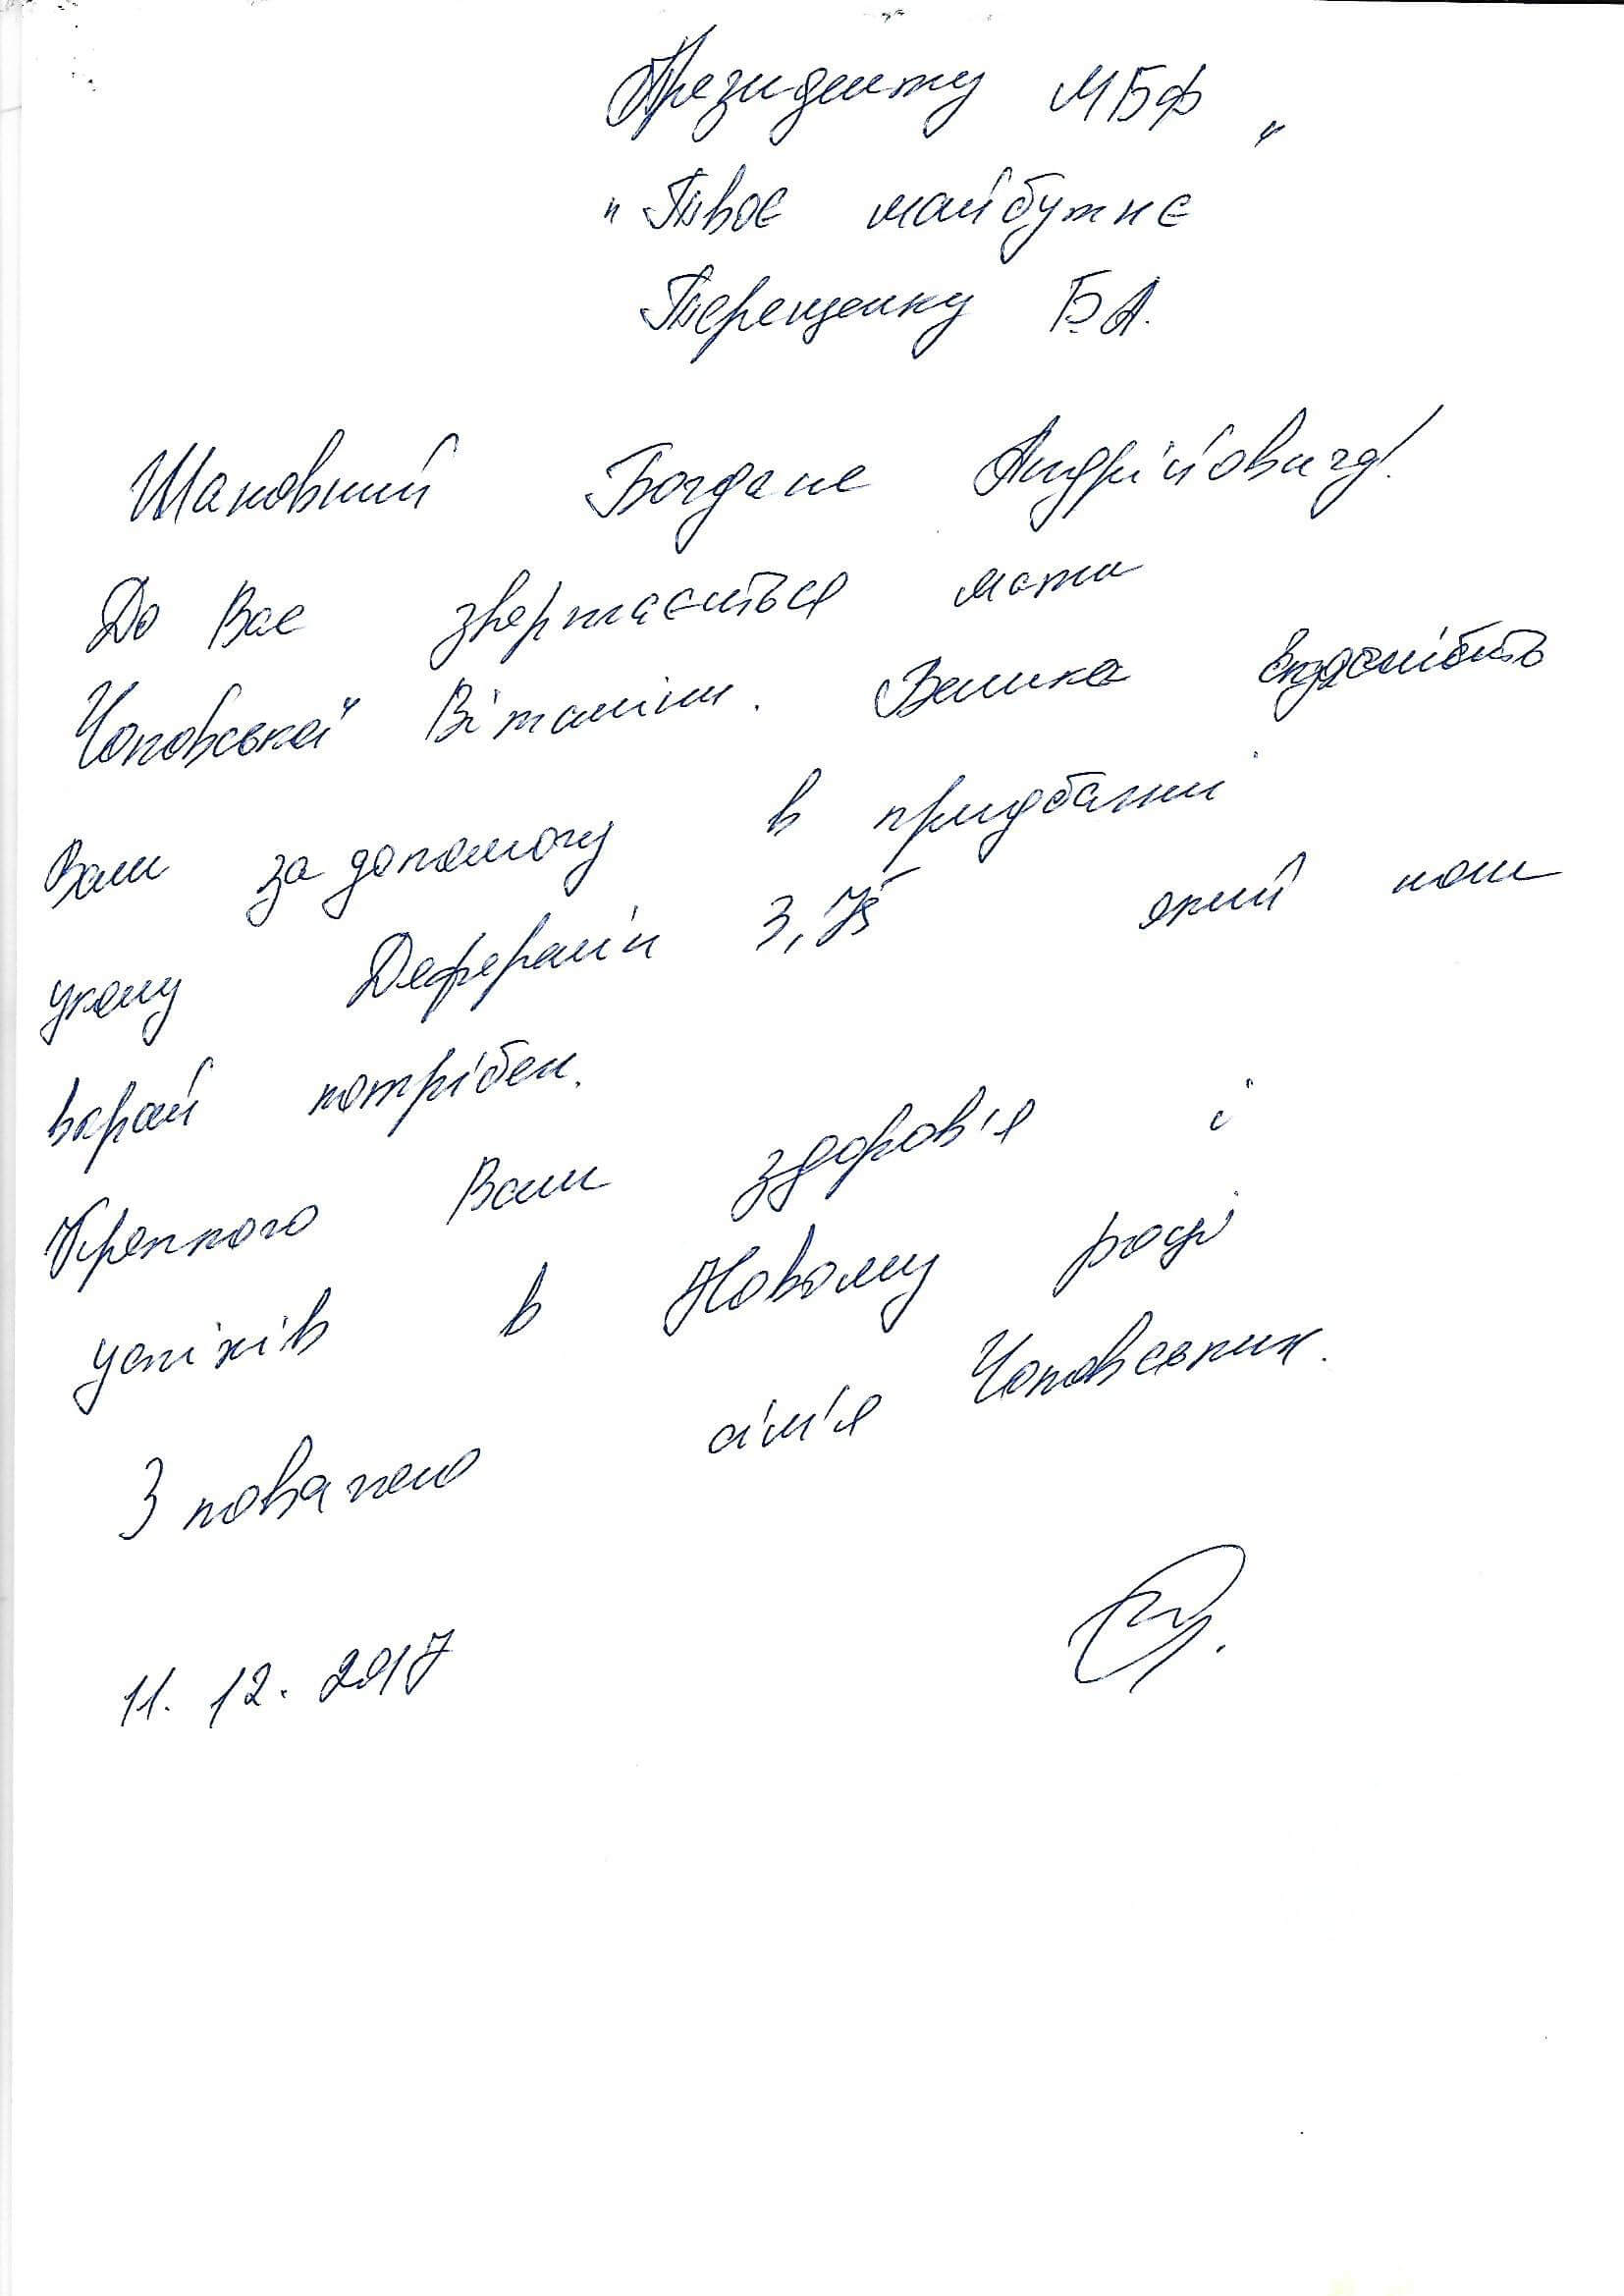 Президенту МБФ "
"Твоє майбутнє
Терещенку Б.А.
Шановний Богдане Андрійовичу!
До Вас звертається мати
Чоповської Віталіни. Велика вдячність
Вам за допомогу в придбанні
уколу Диферелін 3,75 який нам
вкрай потрібен.
Кріпкого Вам здоров'я і
успіхів в Новому році
З повагою сім'я Чоповських.
11. 12. 2017